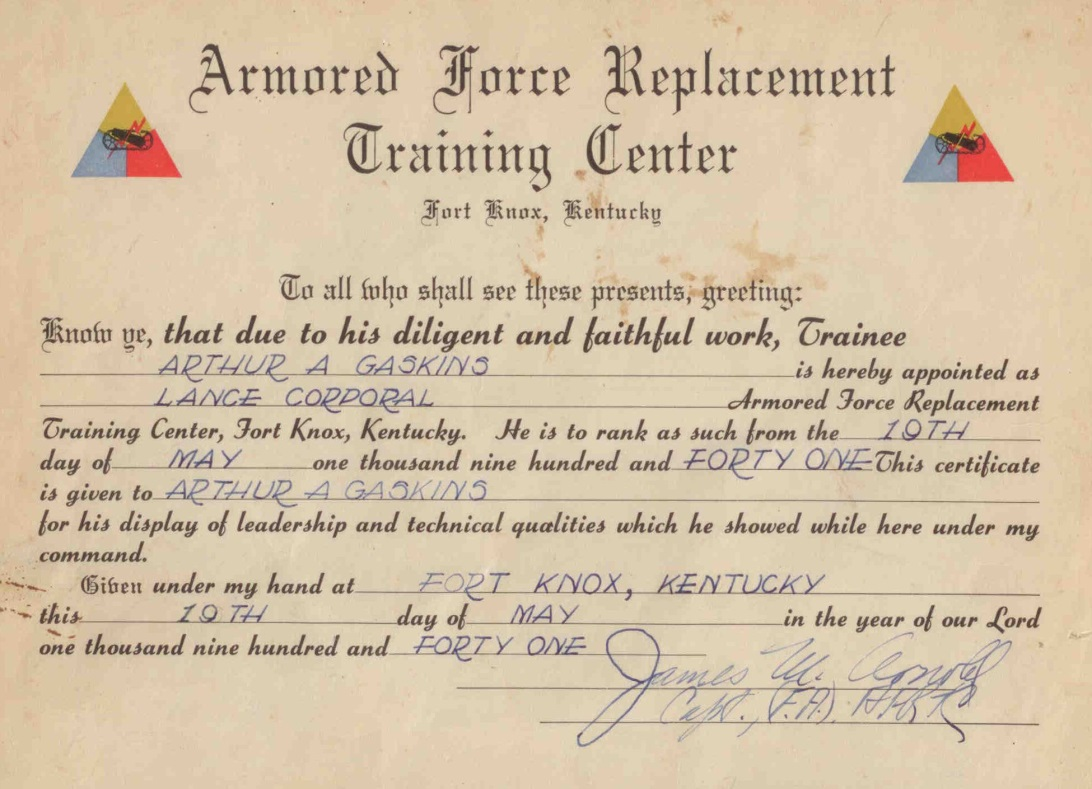 Armored Force Replacement
Training Center
Fort Knox, Kentucky
To all who shall see these presents, greeting:
Know ye, that due to his diligent and faithful work, Trainee
ARTHUR A GASKINS is hereby appointed as
LANCE CORPORAL Armored Force Replacement
Training Center, Fort Knox, Kentucky. He is to rank as such from the 19TH
day of MAY one thousand nine hundred and FORTY ONE This certificate
is given to ARTHUR A GASKINS
for his display of leadership and technical qualities which he showed while here under my
command.
Given under my hand at FORT KNOX, KENTUCKY
this 19TH day of MAY in the year of our Lord
one thousand nine hundred and FORTY ONE
James M. Arnold
Capt., (F.A).